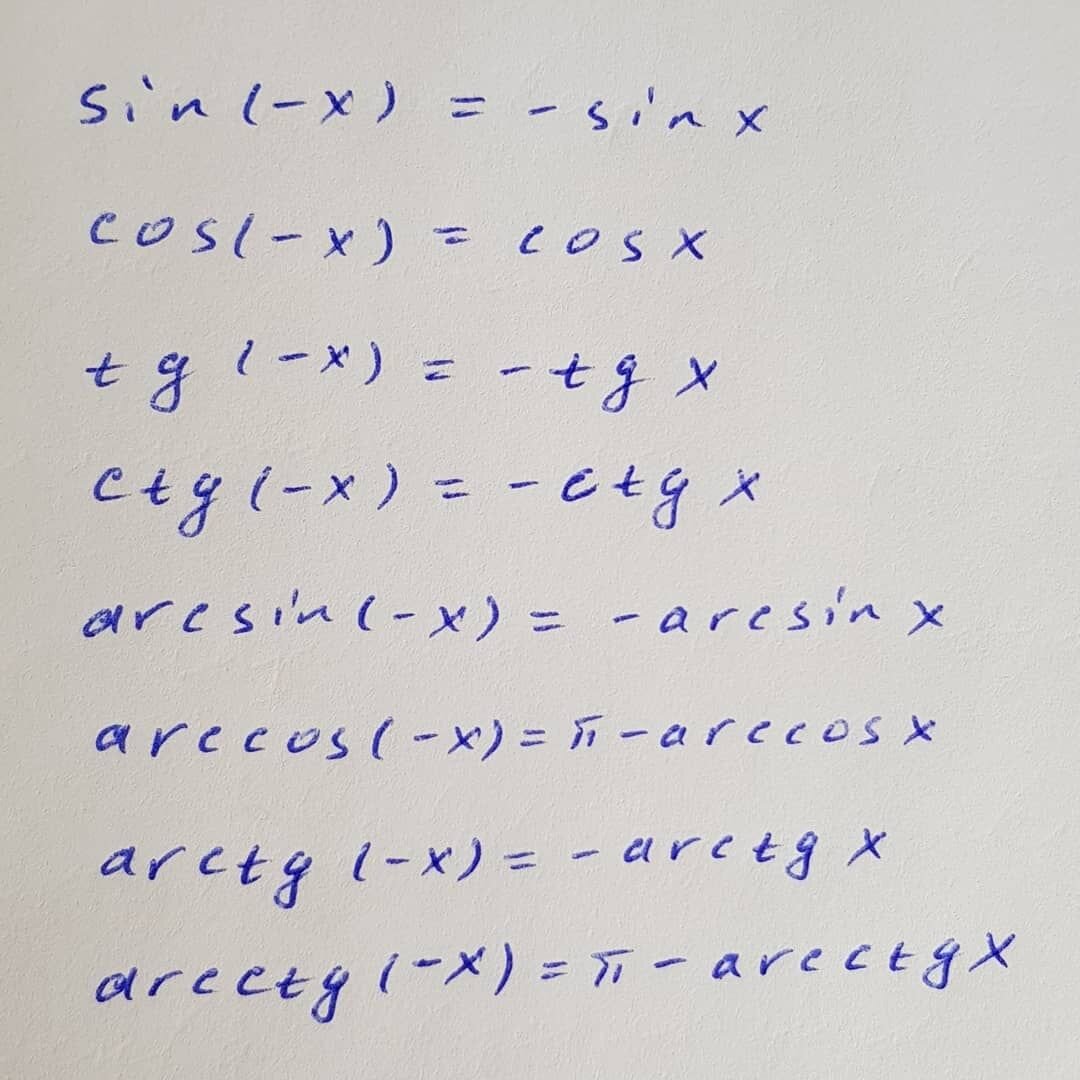 sin(-x) = -sin x
cos(-x) = cos x
tg(-x) = -tg x
ctg(-x) = -ctg x
arcsin(-x) = -arcsin x
arccos(-x) = π - arccos x
arctg(-x) = -arctg x
arcctg(-x) = π - arcctg x